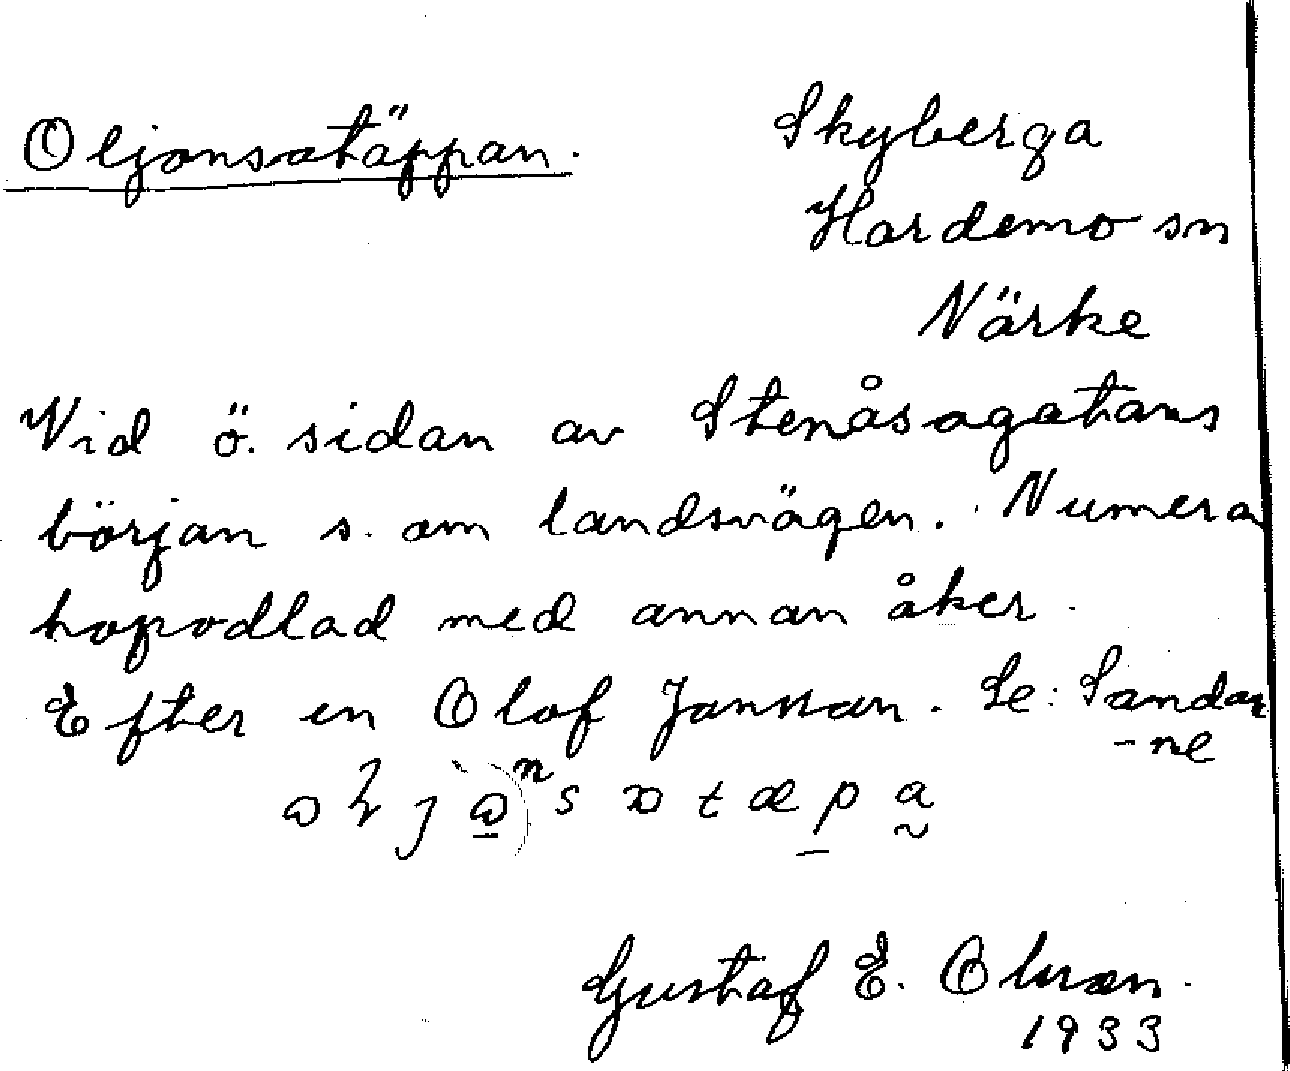 Oljonsatäppan.
Skyberga
Hardemo sn
Närke
Vid ö. sidan av Stenåsagatans
början s. om landsvägen. Numera
hopodlad med annan åker.
Efter en Olof Jonsson. Se: Sandar
-ne
Gustaf E. Olsson.
1933